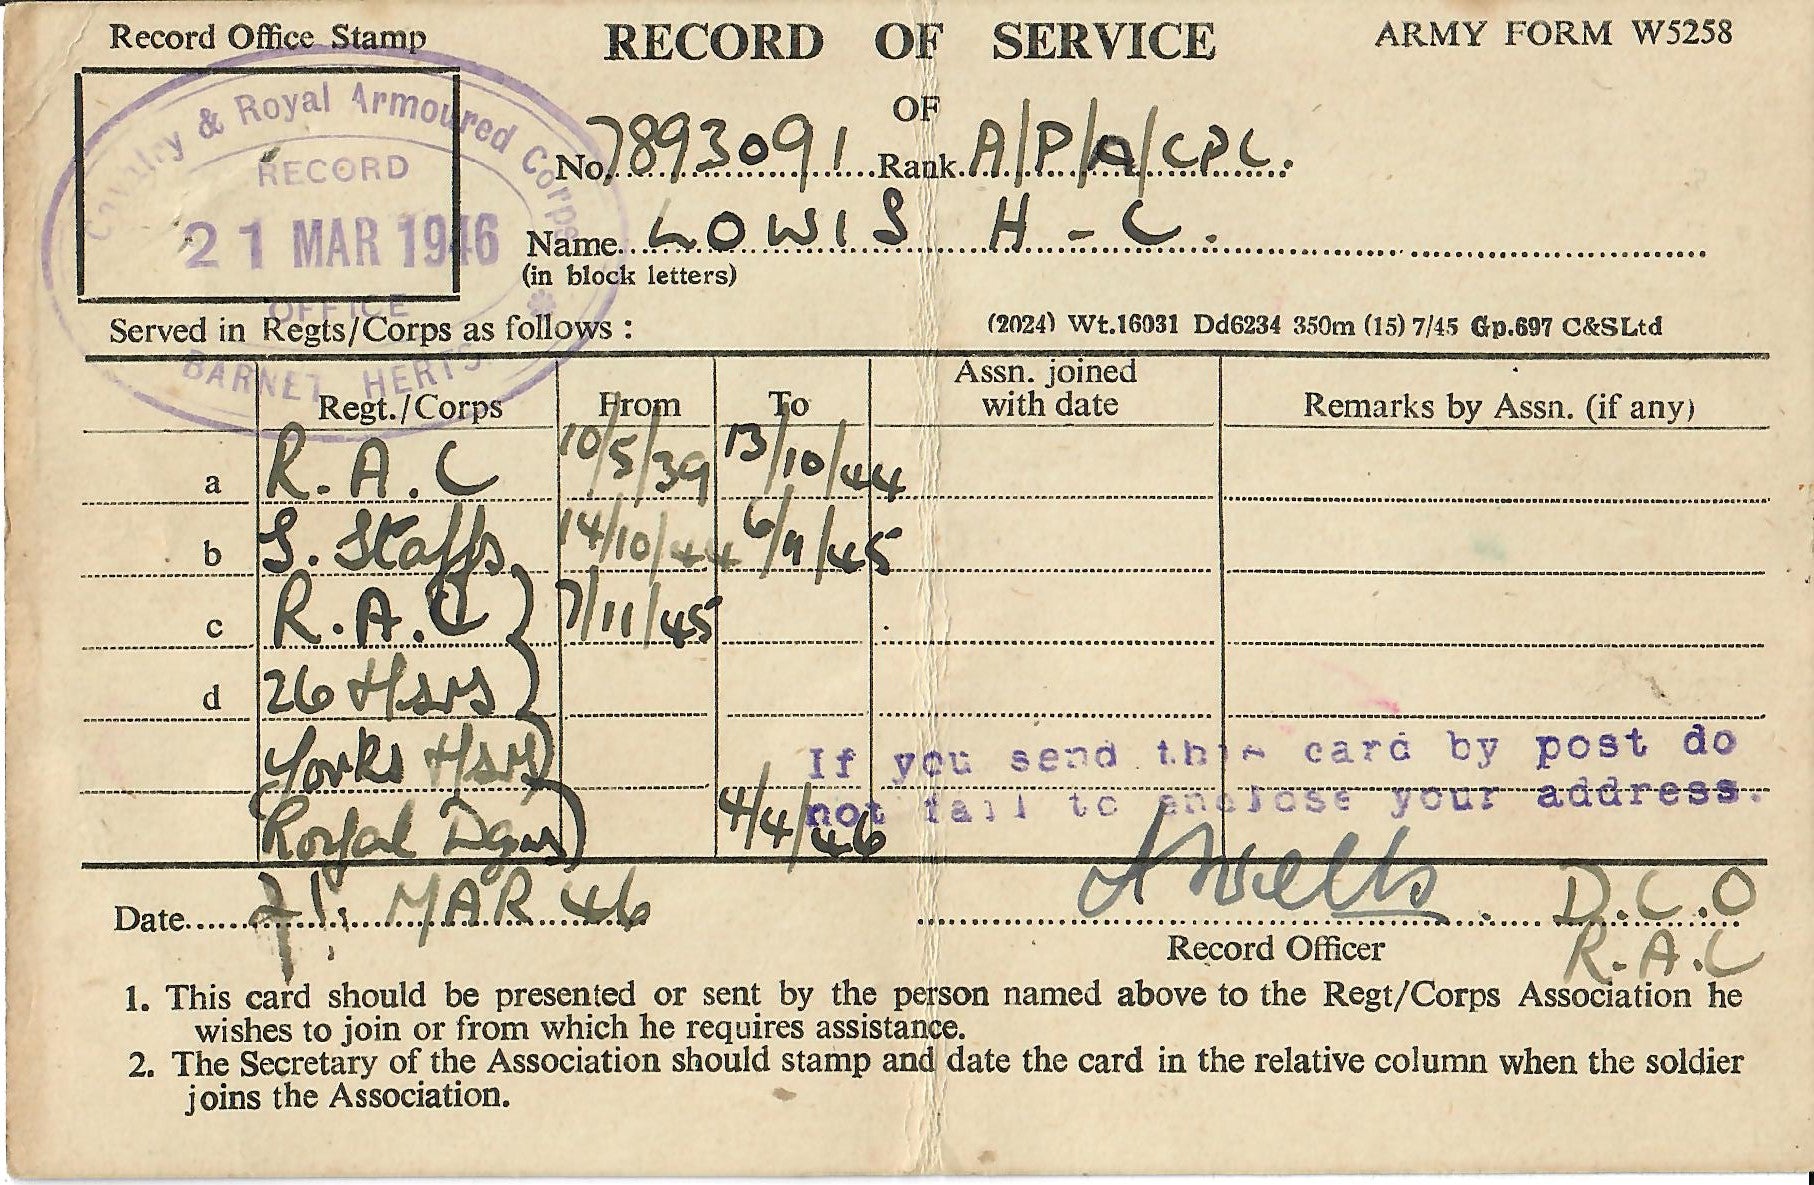 Record Office Stamp
RECORD OF SERVICE
ARMY FORM W5258
OF
Cavalry & Royal Armoured Corps
RECORD
21 MAR 1946
OFFICE
BARNET HERTS.
No. 7893091 Rank A/P/A/CPL.
Name LOWIS H - C.
(in block letters)
Served in Regts/Corps as follows :
(2024) Wt.16031 Dd6234 350m (15) 7/45 Gp.697 C&SLtd
Regt./Corps From To Assn. joined with date Remarks by Assn. (if any)
a R.A.C 10/5/39 13/10/44
b S. Staffs 14/10/44 6/11/45
c R.A.C 7/11/45
d 26 Hsrs
Yorks Hsrs
Royal Dgns 4/4/46
If you send this card by post do
not fail to enclose your address.
Date 21. MAR 46
A Wells D.C.O
Record Officer R.A.C
1. This card should be presented or sent by the person named above to the Regt/Corps Association he
wishes to join or from which he requires assistance.
2. The Secretary of the Association should stamp and date the card in the relative column when the soldier
joins the Association.